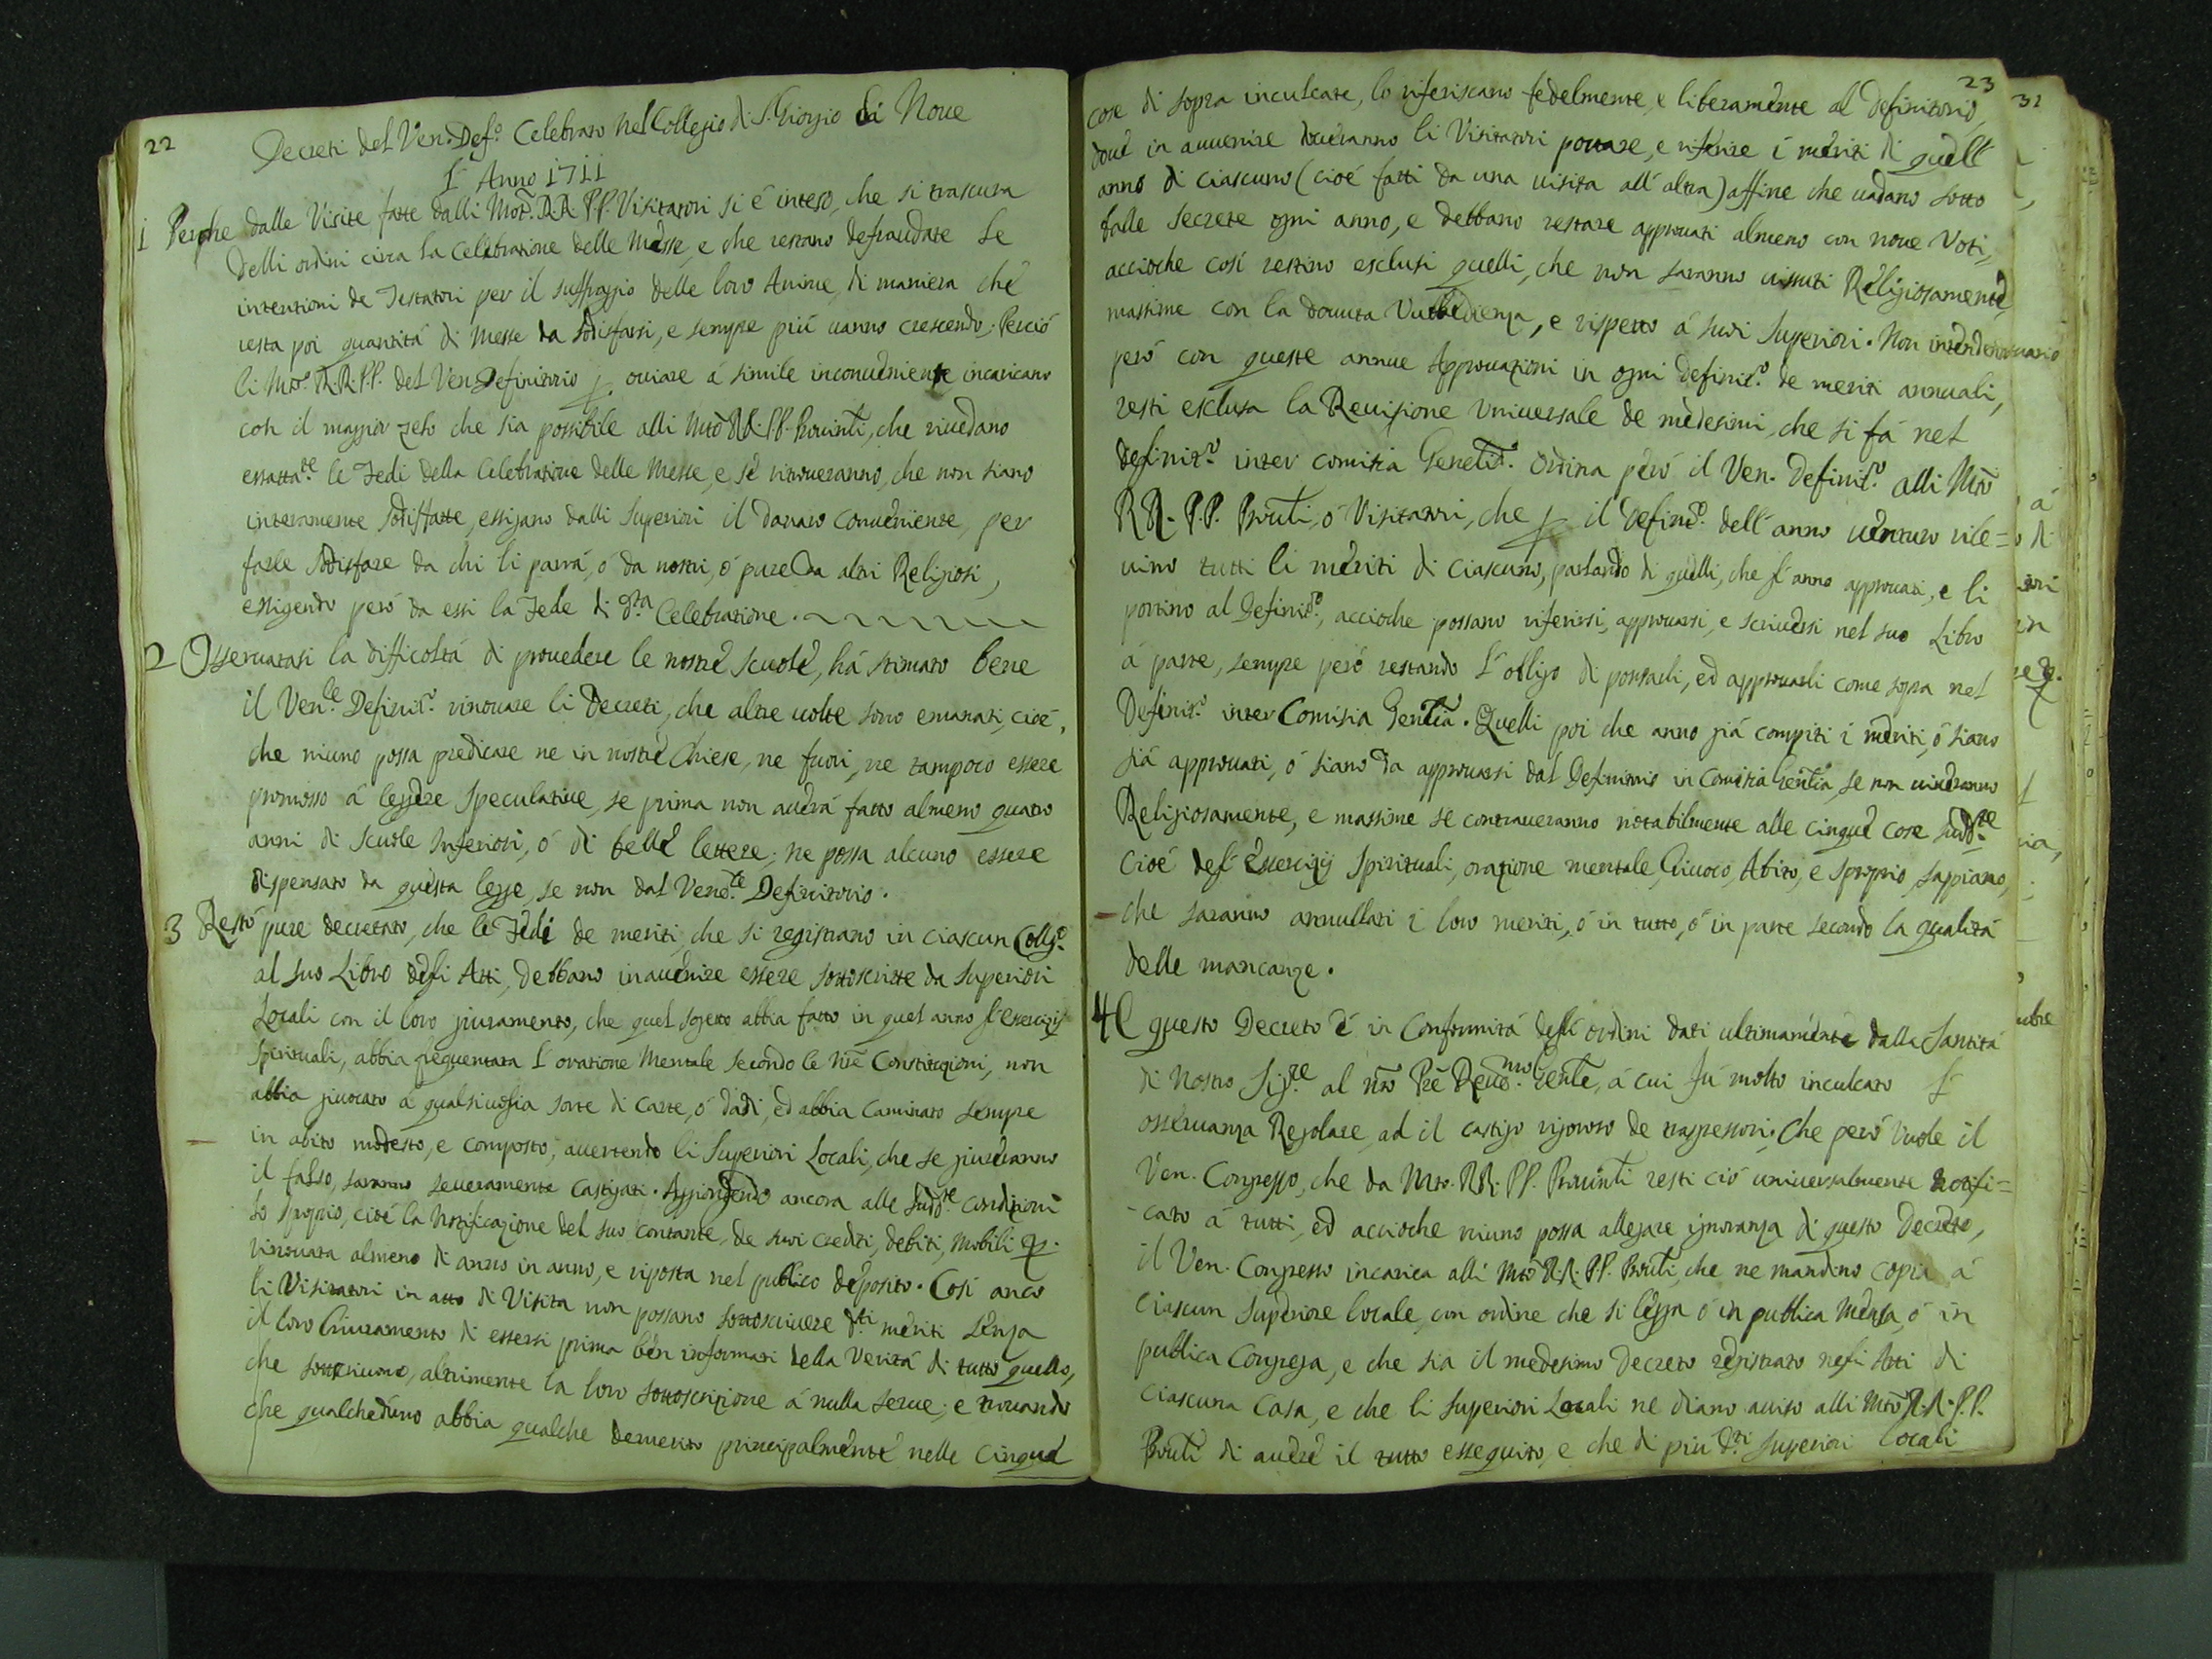 22
Decreti del Ven. Def.o Celebrato nel Collegio di S. Giorgio di Noue
L' Anno 1711
1 Perche dalle Visite fatte dalli Mto. RR. PP. Visitatori si é inteso, che si trascura
delli ordini circa la Celebratione delle Messe, e che restano defraudate le
intentioni de Testatori per il suffraggio delle loro Anime, di maniera che
resta poi quantitá di Messe da sodisfarsi, e sempre piú uanno crescendo; Perció
li Mto. R.R. P.P. del Ven. Definitorio p ouiare á simile inconueniente incaricano
con il maggior zelo che sia possibile alli Mto R.R. P.P. Prouinti, che riuedano
essatta.te le Fedi della Celebratione delle Messe, e se ritroueranno, che non siano
interamente sodisfatte, essigano dalli Superiori il danaro conueniente, per
farle sodisfare da chi li parrá, ó da nostri, ó pure da altri Religiosi,
essigendo peró da essi la Fede di d.ta Celebratione.
2 Osseruatasi la difficoltá di prouedere le nostre scuole, há stimato bene
il Ven.le Definit.o rinouare li Decreti, che altre uolte sono emanati, cioé,
che niuno possa predicare ne in nostre Chiese, ne fuori, ne tampoco essere
promosso á leggere Speculatiue, se prima non auerá fatto almeno quatro
anni di Scuole Inferiori, ó di belle lettere; ne possa alcuno essere
dispensato da questa legge, se non dal Vene.le Definitorio.
3 Restó pure decretato, che le Fedi de meriti, che si registrano in ciascun Collg.o
al suo Libro degli Atti, debbano inauenire essere sottoscritte da Superiori
Locali con il loro giuramento, che quel sogetto abbia fatto in quel anno gl'essercizij
Spirituali, abbia frequentata l' oratione Mentale secondo le nre Constituzioni, non
abbia giuocato á qualsiuoglia sorte di carte, ó dadi, ed abbia caminato sempre
in abito modesto, e composto; auertendo li Superiori Locali, che se giureranno
il falso, saranno seueramente castigati. Aggiongendo ancora alle sudd.te condizioni
lo Sproprio, cioé la Notificazione del suo contante, de suoi crediti, debiti, mobili &.
rinouata almeno di anno in anno, e riposta nel publico deposito. Cosí anco
li Visitatori in atto di Visita non possano sottoscriuere d.ti meriti senza
il loro Giuramento di essersi prima ben informati della Veritá di tutto quello,
che sottoscriuono, altrimente la loro sottoscrizione á nulla serue; e trouando
che qualcheduno abbia qualche demerito principalmente nelle cinque
23
cose di sopra inculcate, lo riferiscano fedelmente, e liberamente al Definitorio,
doue in auuenire doueranno li Visitatori portare, e riferire i meriti di quell'
anno di ciascuno (cioé fatti da una uisita all' altra) affine che uadano sotto
balle secrete ogni anno, e debbano restare approuati almeno con noue Voti,
accioche cosí restino esclusi quelli, che non saranno uissuti Religiosamente,
massime con la douuta Vbbidienza, e rispetto á suoi Superiori. Non intendendo
peró con queste annue Approuazioni in ogni definit.o de meriti annuali,
resti esclusa la Reuisione Vniuersale de medesimi, che si fá nel
definit.o inter comitia Genelia. Ordina peró il Ven. Definit.o alli Mto
RR. P.P. Prouti, ó Visitatori, che p il Definit.o dell' anno uenturo rile=
uino tutti li meriti di ciascuno, parlando di quelli, che l' anno approuati, e li
portino al Definit.o, accioche possano riferirsi, approuarsi, e scriuersi nel suo Libro
á parte, sempre peró restando l' obligo di portarli, ed approuarli come sopra nel
Definit.o inter Comitia Gentia. Quelli poi che anno giá compiti i meriti, ó siano
giá approuati, ó siano da approuarsi dal Definitorio in Comitia Gentia, se non uiueranno
Religiosamente, e massime se contraueranno notabilmente alle cinque cose sudd.te
cioé degl' Essercizij Spirituali, orazione mentale, Giuoco, Abito, e Sproprio, sappiano,
che saranno annullati i loro meriti, ó in tutto, ó in parte secondo la qualitá
delle mancanze.
4 E questo Decreto é in Conformitá degli ordini dati ultimamente dalla Santitá
di Nostro Sig.re al nro Pre Reuo.mo Genle, á cui fú molto inculcato l'
osseruanza Regolare, ad il castigo rigoroso de trasgressori. Che peró Vuole il
Ven. Congresso, che da Mto. RR. PP. Prouinti resti ció uniuersalmente notifi=
-cato á tutti, ed accioche niuno possa allegare ignoranza di questo Decreto,
il Ven. Congresso incarica alli Mto R.R. P.P. Prouti, che ne mandino copia á
ciascun Superiore locale, con ordine che si legga ó in publica Mensa, ó in
publica Congrega, e che sia il medesimo Decreto registrato negli Atti di
ciascuna Casa, e che li Superiori Locali ne diano auiso alli Mto R.R. P.P.
Prouti di auere il tutto esseguito, e che di piú d.ti Superiori Locali
31